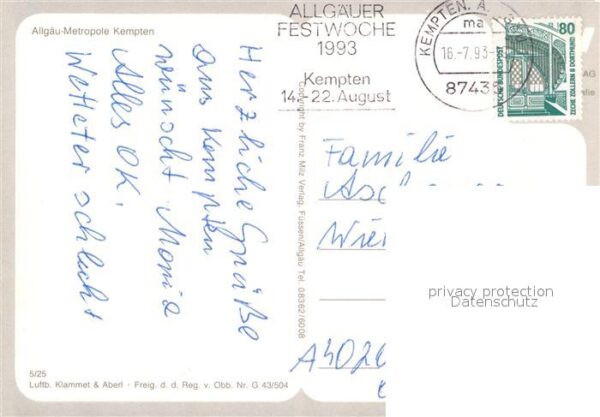 Allgäu-Metropole Kempten
ALLGÄUER
FESTWOCHE
1993
Kempten
14.-22. August
KEMPTEN, A
ma
16.-7.93-
8743
80
DEUTSCHE BUNDESPOST
ZECHE ZOLLERN II DORTMUND
AG
Herzliche Grüße
aus Kempten
wünscht Monia
Alles OK.
Wetteter schlecht
Copyright by Franz Milz Verlag, Füssen/Allgäu Tel. 08362/6008
Familie
Wie
A402
privacy protection
Datenschutz
5/25
Luftb. Klammet & Aberl - Freig. d. d. Reg. v. Obb. Nr. G 43/504